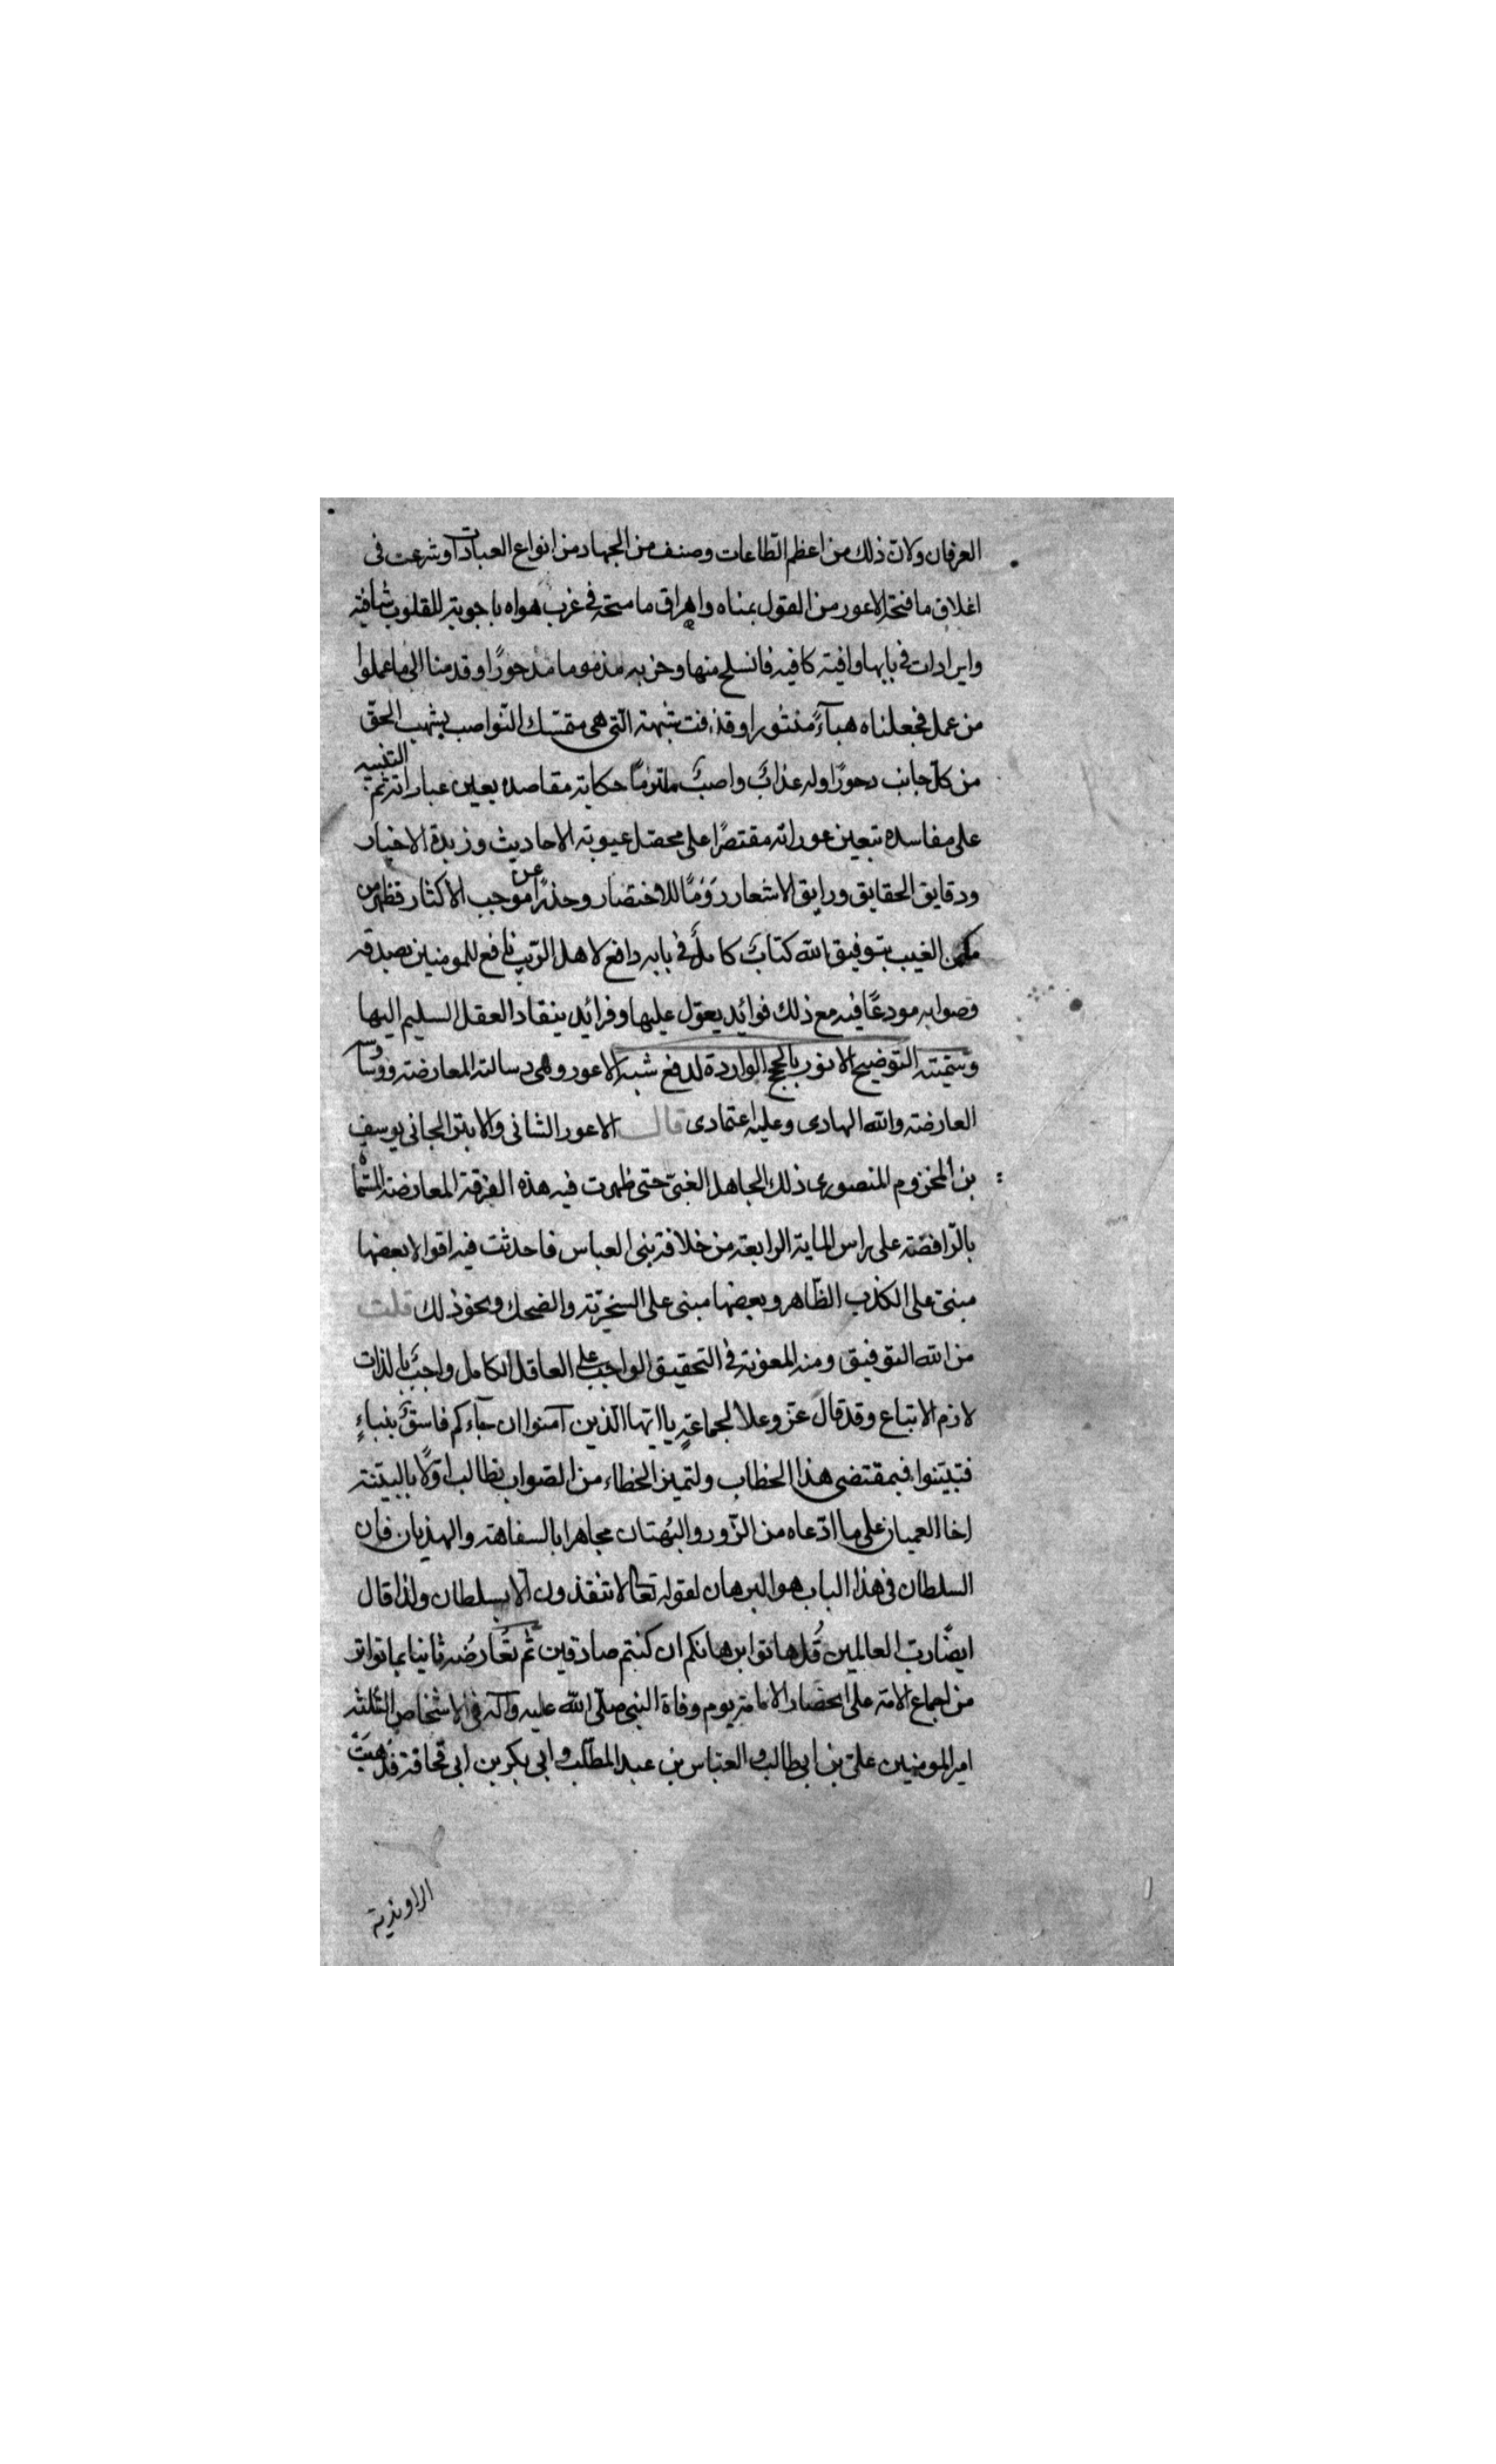 العرفان ولان ذلك من اعظم الطاعات وصنف من الجهاد من انواع العبادات وشرعت فى
اغلاق ما فتحه الاعور من القول بمناه واهراق ما متحه فى غرب هواه باجوبة للقلوب شافية
وايرادات فى بابها وافية كافيه فانسلخ منها وخر به مذموما مدحورًا وقدمنا الى ما عملوا
من عمل فجعلناه هبآءً منثورا وقذفت شبهته التى هى متمسك النواصب بشهب الحق
من كل جانب دحورًا وله عذابٌ واصبٌ ملتزمًا حكاية مقاصده بعين عباراته ثم التنبيه
على مفاسده تبعين عوراته مقتصرًا على محصل عيوبة الاحاديث وزبدة الاخبار
ودقايق الحقايق ورايق الاشعار رَوْمًا للاختصار وحذرًا عن موجب الاكثار فظهر من
مكمن الغيب بتوفيق الله كتابٌ كاملٌ فى بابه دافع لاهل الريب نافع للمومنين بصدقه
وصوابه مودعًا فيه مع ذلك فوائد يعوّل عليها وفرائد ينقاد العقل السليم اليها
وسمّيته التوضيح الانور بالحجج الواردة لدفع شبه الاعور وهى رسالة المعارضة ووسا
العارضة والله الهادى وعليه اعتمادى قال الاعور الثانى والابتر الجانى يوسف
بن المخزوم المنصورى ذلك الجاهل الغبىّ حتى ظهرت فيه هذه الفرقة المعارضة المسماة
بالرّافضة على راس الماية الرابعة من خلافة بنى العباس فاحدثت فيه اقوالا بعضها
مبنىّ على الكذب الظّاهر وبعضها مبنى على السخريّة والضحك ونحو ذلك قلت
من الله التوفيق ومنه المعونة فى التحقيق الواجب على العاقل الكامل واجبٌ بالذات
لازم الاتباع وقد قال عزّ وعلا لجماعةٍ يا ايّها الّذين آمنوا ان جآءكم فاسقٌ بنباءٍ
فتبيّنوا فبمقتضى هذا الخطاب ولتميز الخطاء من الصواب نطالب اوّلًا بالبيّنة
اخا العميان على ما ادّعاه من الزّور والبُهتان مجاهرا بالسفاهة والهذيان فان
السلطان فى هذا الباب هو البرهان لقوله تعالى لا تنفذون الّا بسلطان ولذا قال
ايضًا ربّ العالمين قُل هاتوا برهانكم ان كنتم صادقين ثم نُعارضُه ثانيا بما تواتر
من اجماع الامة على انحصار الامامة يوم وفاة النبى صلّى الله عليه وآله فى الاشخاص الثلثة
امير المومنين علىّ بن ابى طالب والعبّاس بن عبد المطّلب وابى بكر بن ابى قحافة فذهبَتْ
الراونديّة